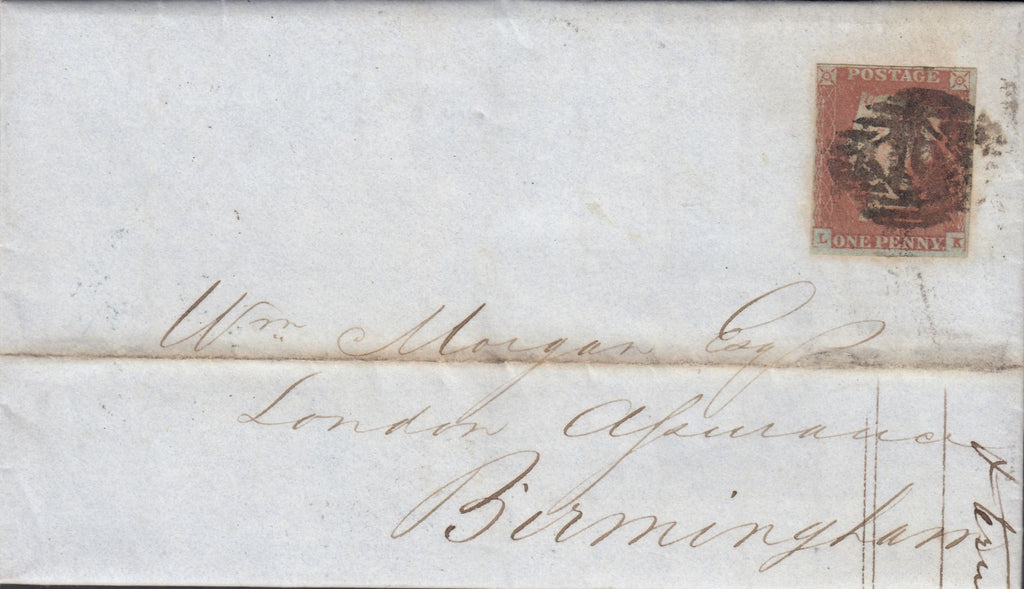 POSTAGE
L ONE PENNY. K
Wm Morgan Esqr
London Aſsurance
Birmingham